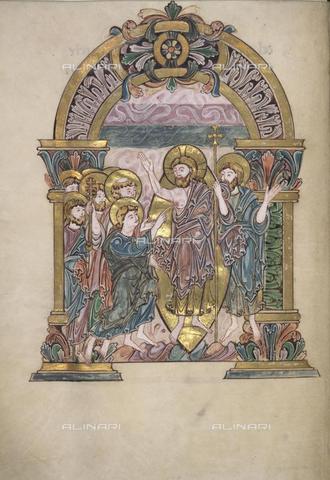 ALINARI
ALINARI
ALINARI
ALINARI